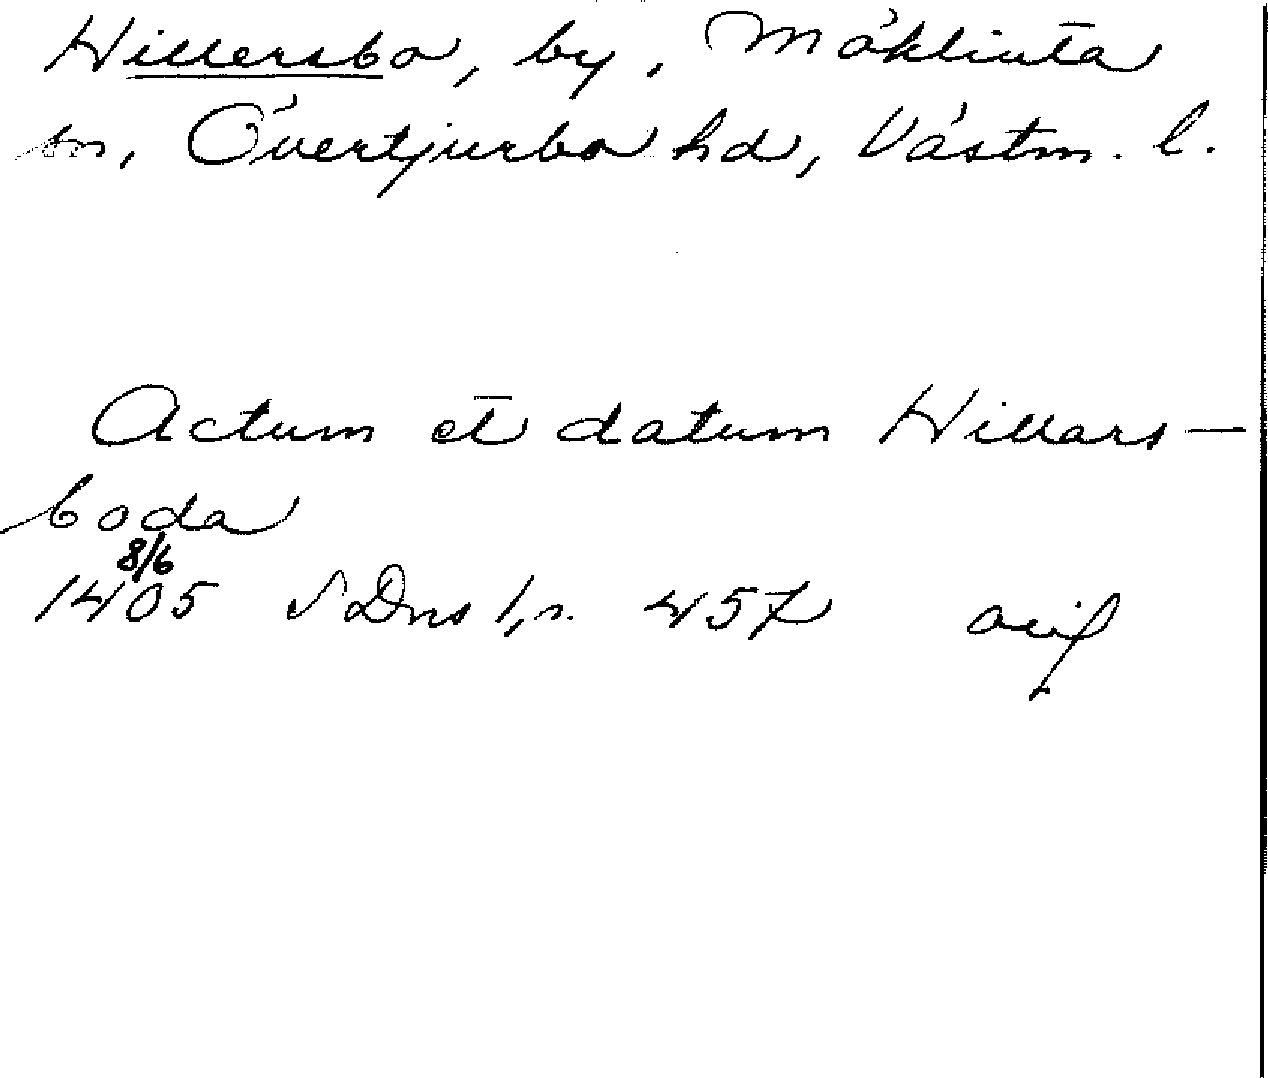 Hillersbo, by, Möklinta
sn, Övertjurbo hd, Västm. l.
Actum et datum Hillars-
boda
8/6
1405 SDns 1, s. 457 avif